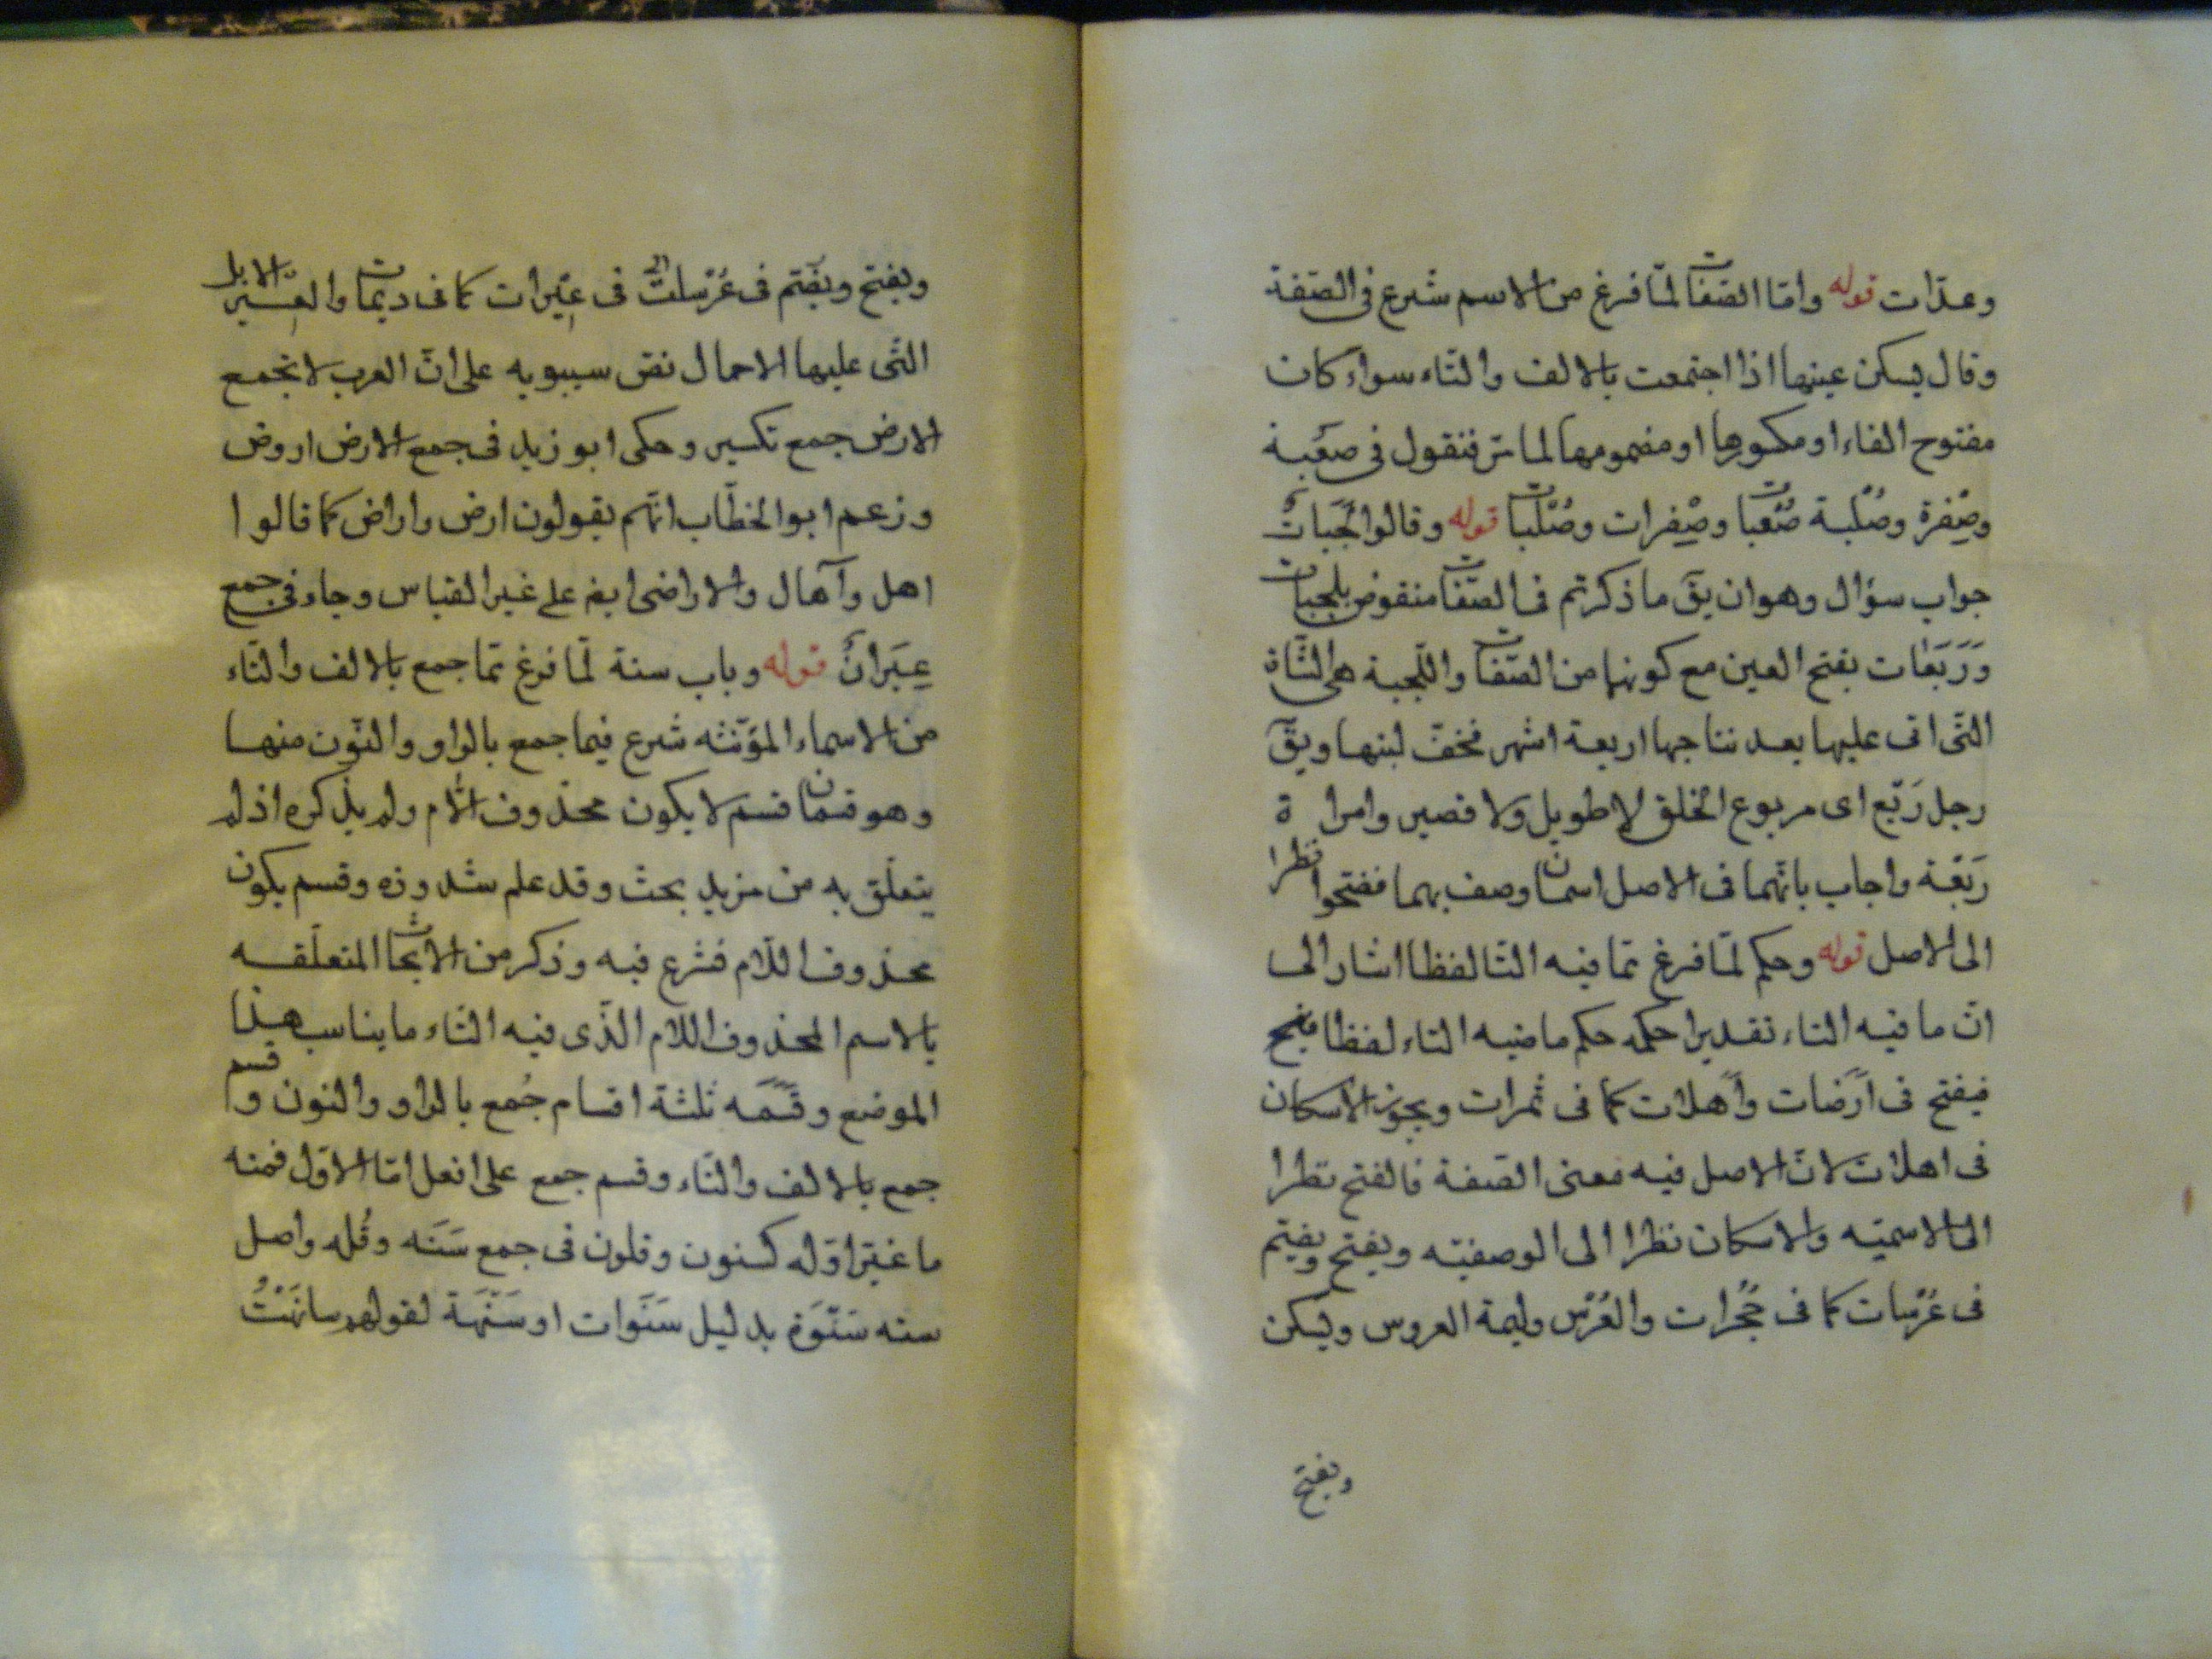 وعدّات قوله وامّا الصّفات لمّا فرغ من الاسم شرع فى الصّفة
وقال ليسكن عينها اذا اجتمعت بالالف والتّاء سواء كان
مفتوح الفاء او مكسورها او مضمومها لما مرّ فنقول فى صَعْبة
وصِفْرة وصُلْبة صَعْبات وصِفْرات وصُلْبات قوله وقالوا لَجَبات
جواب سؤال وهو ان يقَ ما ذكرتم فى الصّفات منقوض بلجبات
وَرَبَعات بفتح العين مع كونهما من الصّفات واللّجبة هى الشّاة
التّى اتى عليها بعد نتاجها اربعة اشهر فخفّ لبنها ويقَ
رجل رَبْع اى مربوع الخلق لا طويل ولا قصير وامراة
رَبْعَة واجاب بانّهما فى الاصل اسمان وصف بهما ففتحوا نظرا
الى الاصل قوله وحكم لمّا فرغ ممّا فيه التّا لفظا اشار الى
انّ ما فيه التاء تقديرا حكمه حكم ما فيه التاء لفظا
فيفتح فى اَرَضات واَهَلات كما فى ثمرات ويجوز الاسكان
فى اهلات لانّ الاصل فيه معنى الصّفة فالفتح نظرا
الى الاسميّه والاسكان نظرا الى الوصفيّه ويفتح ويضم
فى عُرُسات كما فى حُجُرات والعُرْس وليمة العروس وليسكن
ويفتح
ويفتح ويضم فى فى عِيَرات كما فى ديمات والعِير الابل
التّى عليها الاحمال نقل سيبويه على انّ العرب لا تجمع
الارض جمع تكسير وحكى ابو زيد فى جمع الارض اروض
وزعم ابو الخطّاب انّهم يقولون ارض واراض كما قالوا
اهل واهال والاراضى ايضا على غير القياس وجاء فى جمع
عِيَران قوله وباب سنة لمّا فرغ ممّا جمع بالالف والتّاء
من الاسماء المؤنّثه شرع فيما جمع بالواو والنّون منها
وهو قسمان قسم لا يكون محذوف اللّام ولم يذكره اذ لم
يتعلّق به من مزيد بحث وقد علم شذوذه وقسم يكون
محذوف اللّام فشرع فيه وذكر من الابحاث المتعلّقه
بالاسم المحذوف اللّام الذّى فيه التّاء ما يناسب هذا
الموضع وقسَّمَه ثلثة اقسام قسم جُمع بالواو والنون و
جمع بالالف والتّاء وقسم جمع على افعل امّا الاوّل فمنه
ما غيّر اوّله كسنون وقلون فى جمع سَنَه وقُله واصل
سنه سَنَوَة بدليل سَنَوات او سَنَهَة لقولهم سانَهْتُ